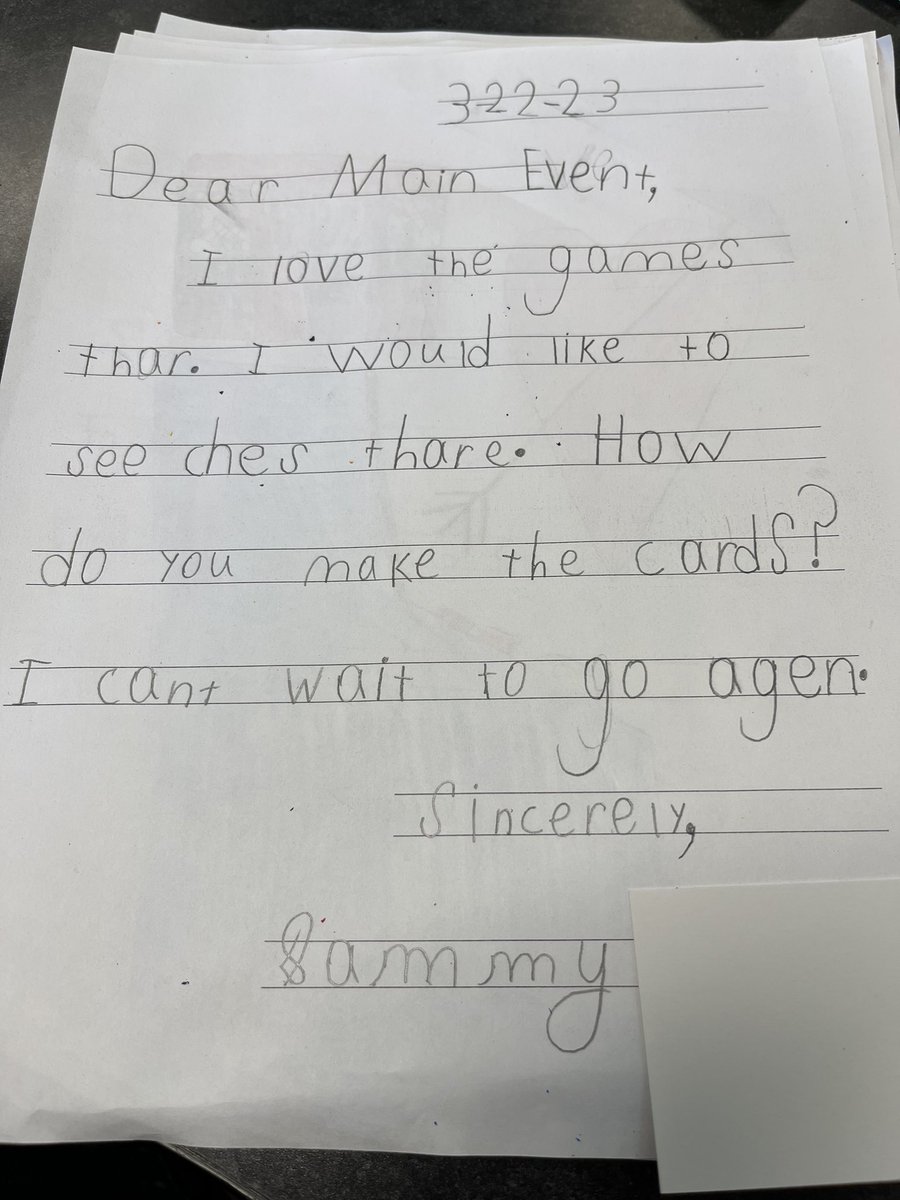 3-22-23
Dear Main Event,
I love the games
thar. I would like to
see ches thare. How
do you make the cards?
I cant wait to go agen.
Sincerely,
Sammy